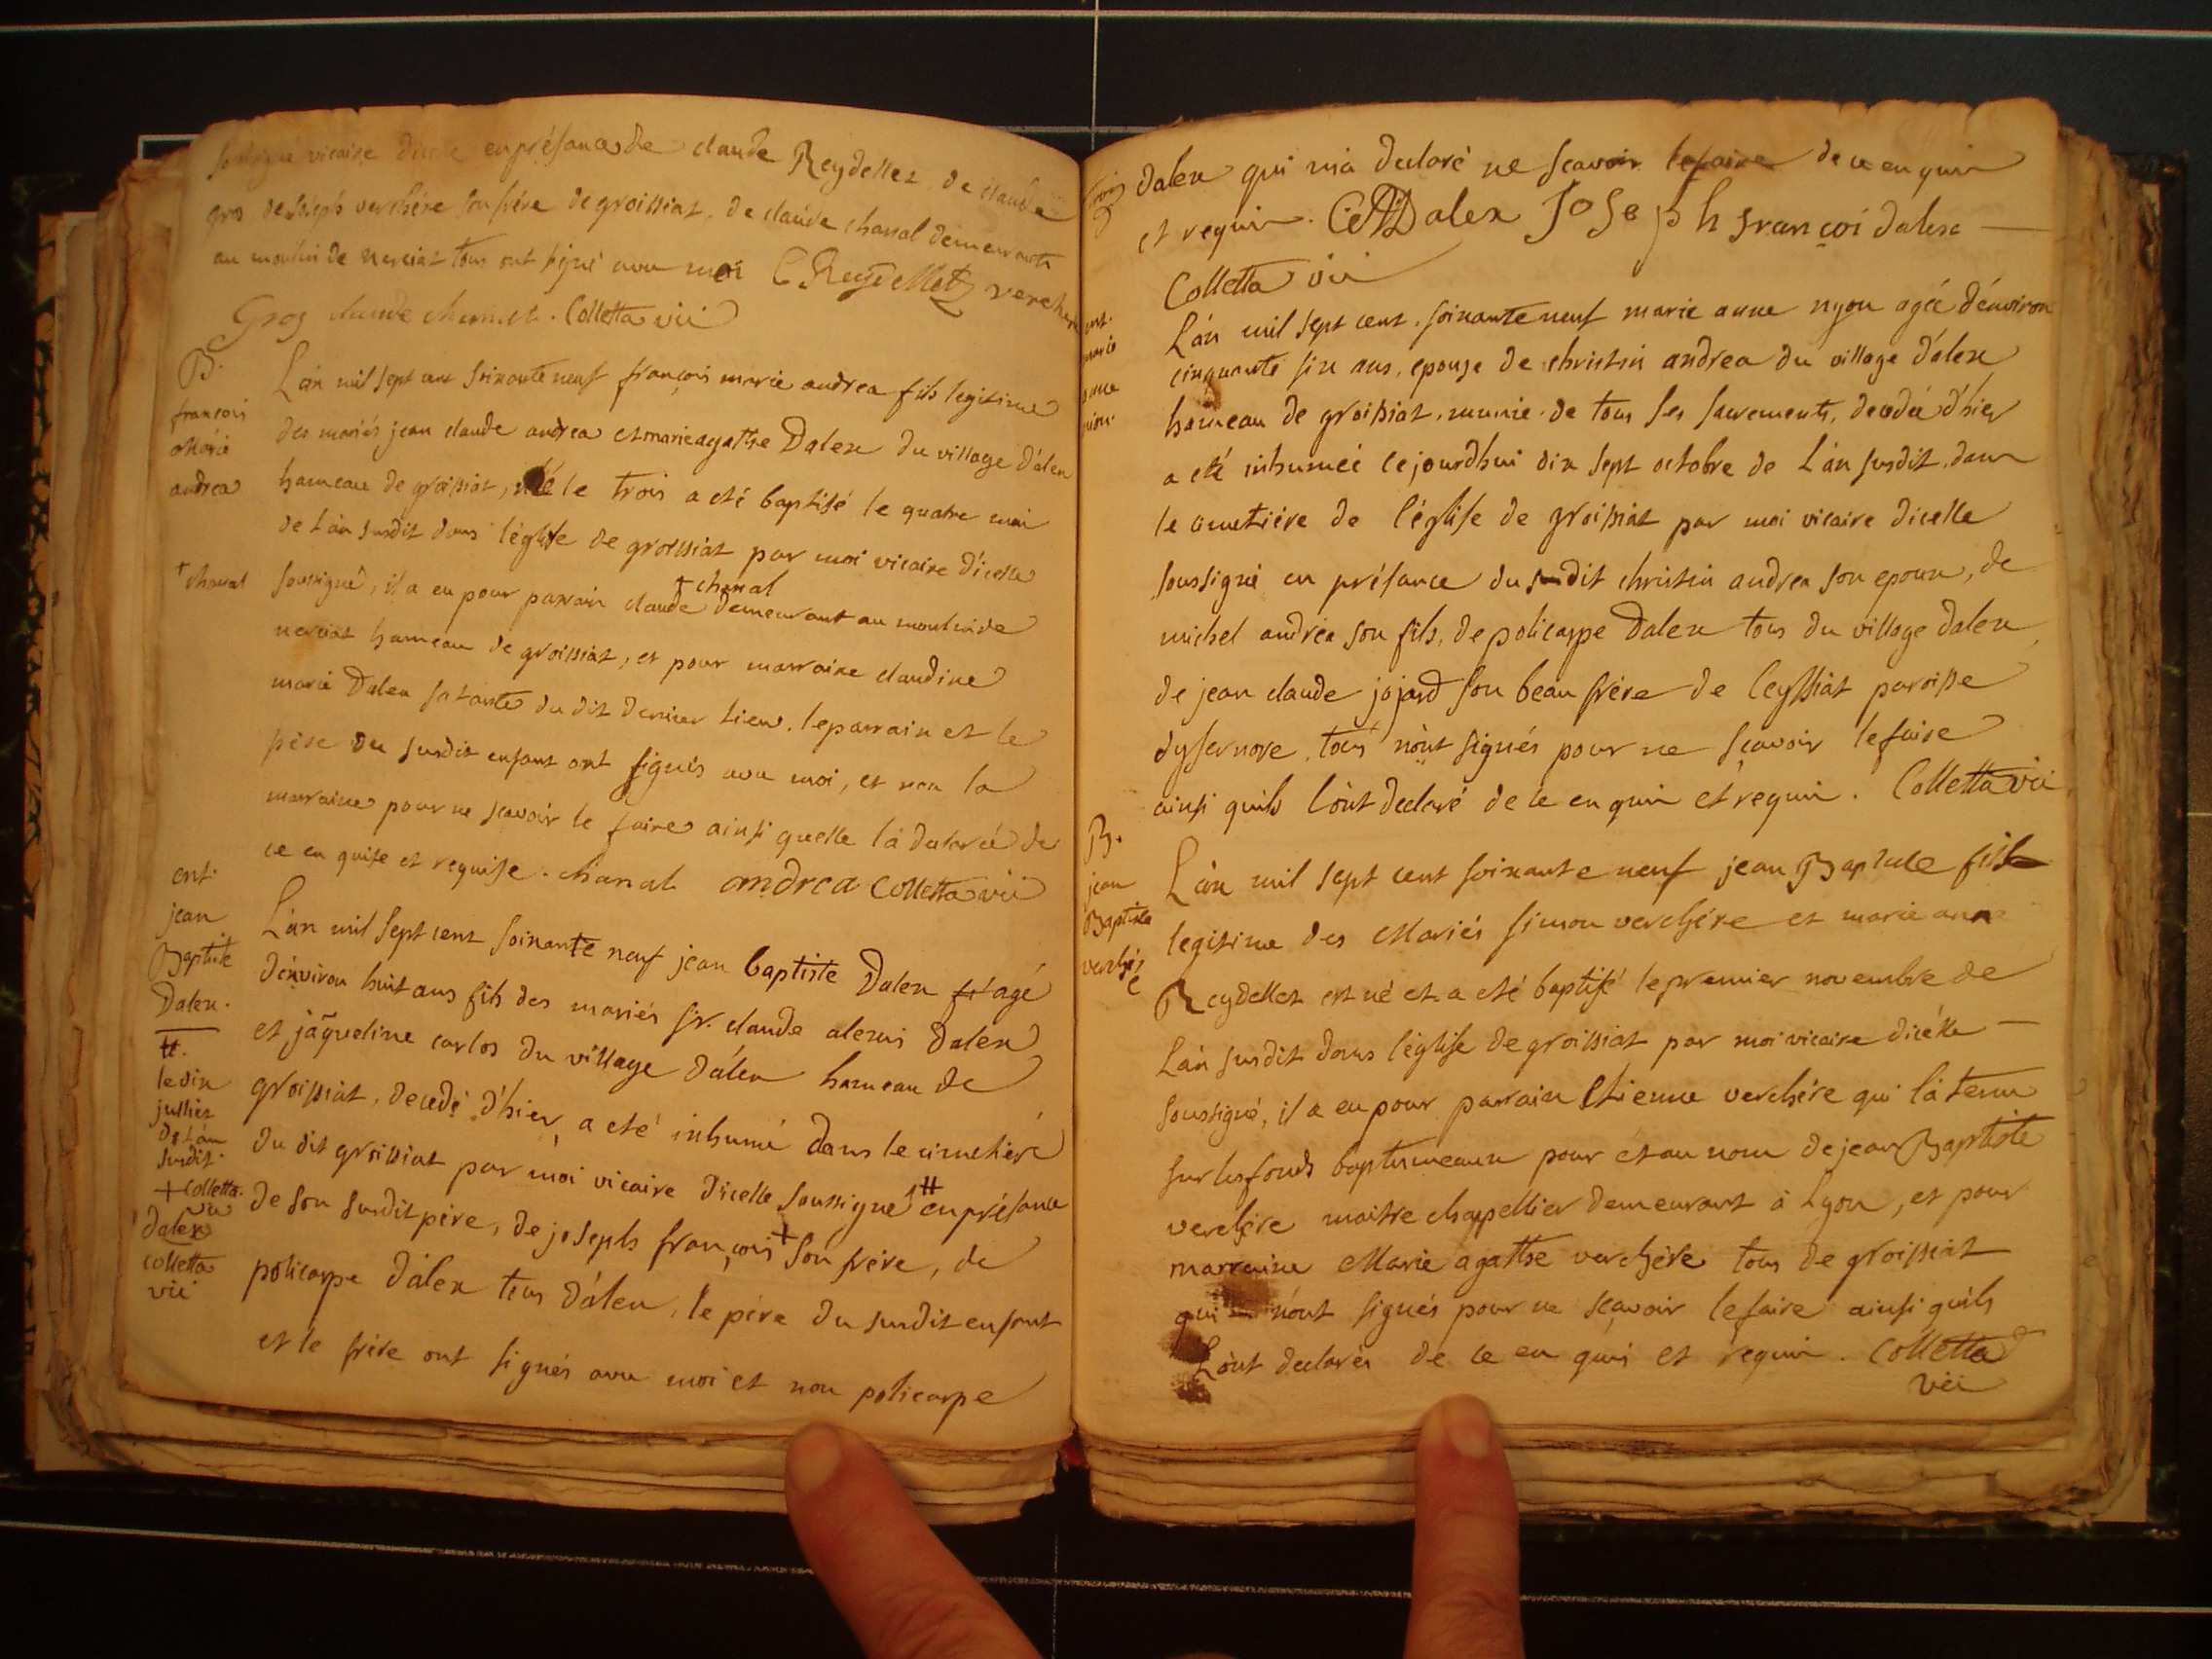 soussigné vicaire dicelle en présance de claude Reydellet de claude
gros de Joseph verchére son frére de groissiat, de claude chanal demeurants
au moulin de nerciat tous ont signé avec moi C Reydellet verchere
Gros claude chanal. Colletta vic
B.
françois
marie
andrea
L'án mil sept cent soixante neuf françois marie andrea fils legitime
des mariés jean claude andrea et marie agathe Dalex du village d'alex
hameau de groissiat, né le trois a eté baptisé le quatre mai
de l'án susdit dans léglise de groissiat par moi vicaire d'icelle
† chanal
soussigné, il a eu pour parrain claude † chanal demeurant au moulin de
nerciat hameau de groissiat, et pour marraine claudine
marie Dalex sa tante du dit dernier lieu. le parrain et le
pére du susdit enfant ont signés avec moi, et non la
marraine pour ne scavoir le faire ainsi quelle la declaré de
ce en quise et requise. chanal andrea Colletta vic
ent.
jean
Baptiste
Dalex.
#.
le dix
jullier
de l'án
susdit.
+ Colletta
vic
dalex
colletta
vic
L'án mil sept cent soixante neuf jean baptiste Dalex fil agé
dénviron huit ans fils des mariés sr. claude alexis Dalex
et jaqueline carlos du village d'alex hameau de
groissiat, decedé d'hier, a eté inhumé dans le cimetiére
du dit groissiat par moi vicaire dicelle soussigné # en présance
de son susdit pére, de joseph françois + son frére, de
policarpe dalex tous d'alex, le pére du susdit enfant
et le frére ont signés avec moi et non policarpe
dalex qui m'a declaré ne scavoir le faire de ce en quis
et requis. C A Dalex Joseph françoi dalex
Colletta vic
ent.
marie
anne
nion.
L'án mil sept cent soixante neuf marie anne nyon agée d'énviron
cinquante six ans, epouse de christin andrea du village d'alex
hameau de groissiat, munie de tous ses sacrements, decedée d'hier
a eté inhumée cejourdhui dix sept octobre de l'án susdit dans
le cimetiére de l'église de groissiat par moi vicaire dicelle
soussigné en présance du susdit christin andrea son epoux, de
michel andréa son fils, de policarpe Dalex tous du village dalex
de jean claude jojard son beau frére de leyssiat paroisse
dysernore. tous nont signés pour ne sçavoir le faire
ainsi quils lont declaré de ce en quis et requis. Colletta vic
B.
jean
Baptiste
verchére
L'án mil sept cent soixante neuf jean Baptiste fils
legitime des Mariés simon verchére et marie anne
Reydellet est né et a eté baptisé le premier novembre de
L'án susdit dans léglise de groissiat par moi vicaire dicélle
soussigné, il a eu pour parrain Etienne verchére qui la tenu
sur les fonds baptismeaux pour et au nom de jean Baptiste
verchére maitre chappellier demeurant à Lyon, et pour
marraine Marie agathe verchére tous de groissiat
qui nont signés pour ne sçavoir le faire ainsi quils
Lont declarés de ce en quis et requis. Colletta
vic